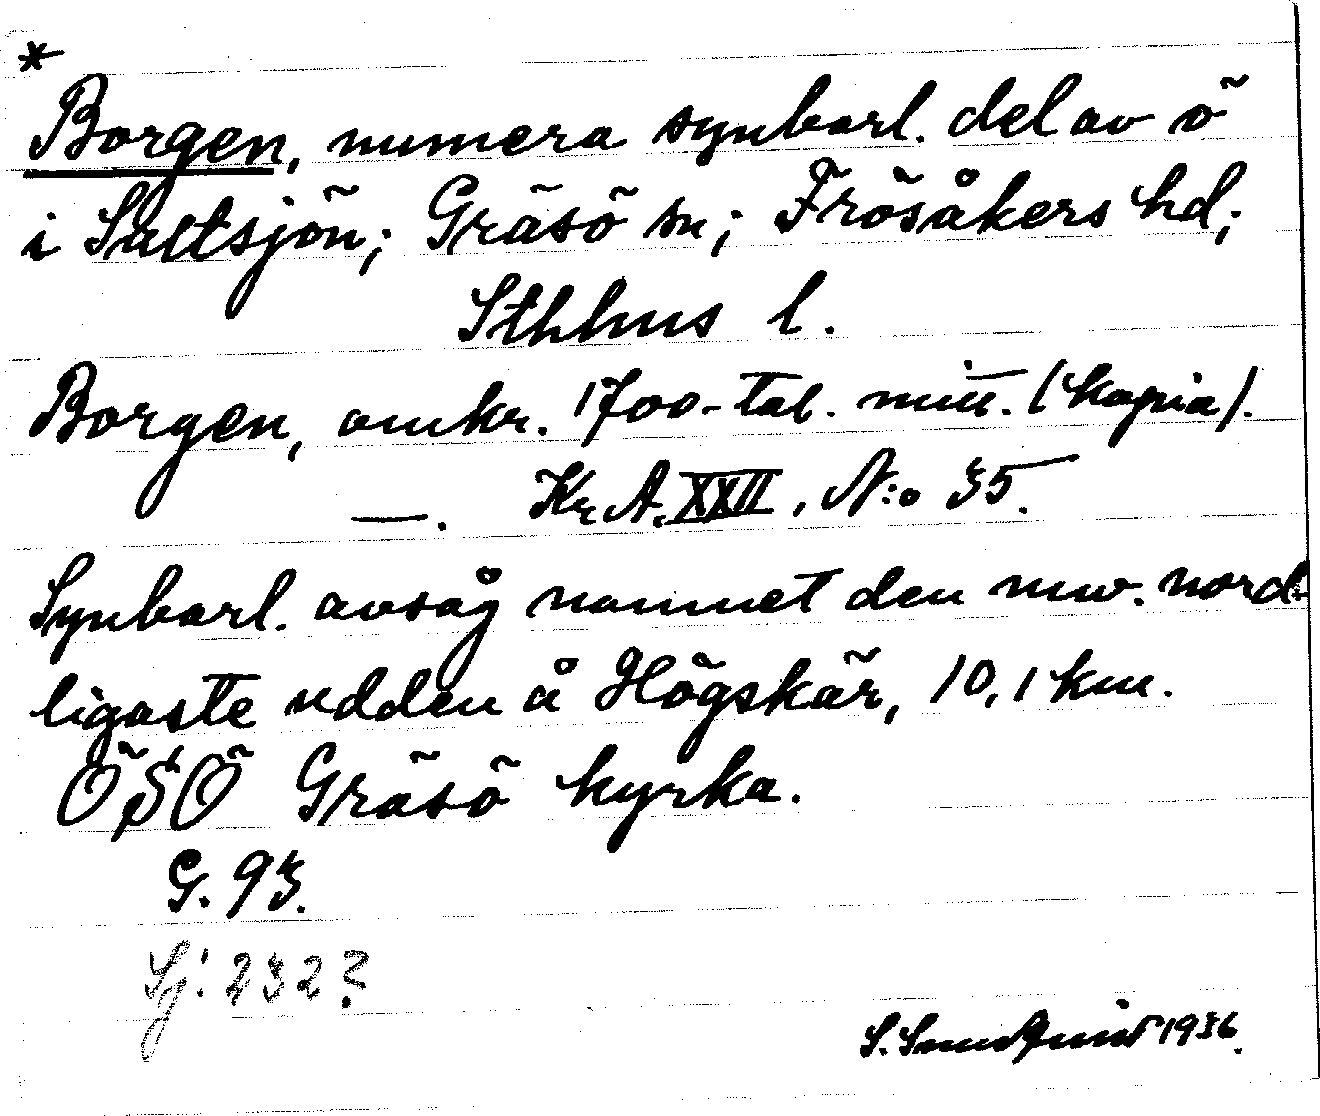 *
Borgen, numera synbarl. del av ö
i Saltsjön; Gräsö sn; Frösåkers hd;
Sthlms l.
Borgen, omkr. 1700-tal. mitt. (kopia).
—. Kr. A. XXII, N:o 35.
Synbarl. avsåg namnet den nuv. nord-
ligaste udden å Högskär, 10,1 km.
ÖSÖ Gräsö kyrka.
G. 93.
Sj: 232?
S. Sundquist 1936.